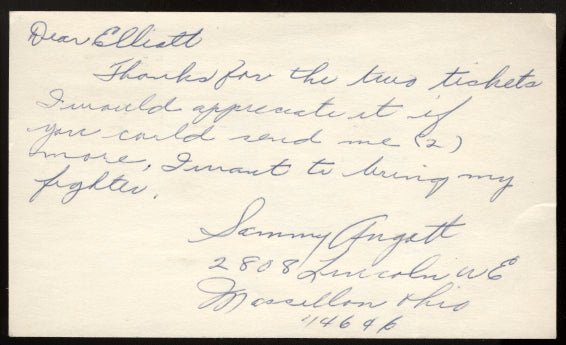 Dear Elliott
Thanks for the two tickets
I would appreciate it if
you could send me (2)
more, I want to bring my
fighter.
Sammy Angott
2808 Lincoln W E
Massillon Ohio